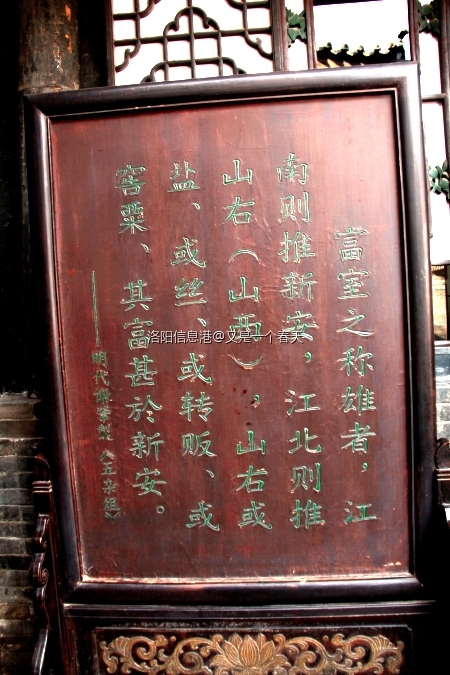 富室之称雄者，江
南则推新安，江北则推
山右（山西），山右或
盐、或丝、或转贩、或
窖粟、其富甚於新安。
——明代谢肇淛《五杂组》
洛阳信息港@又是一个春天